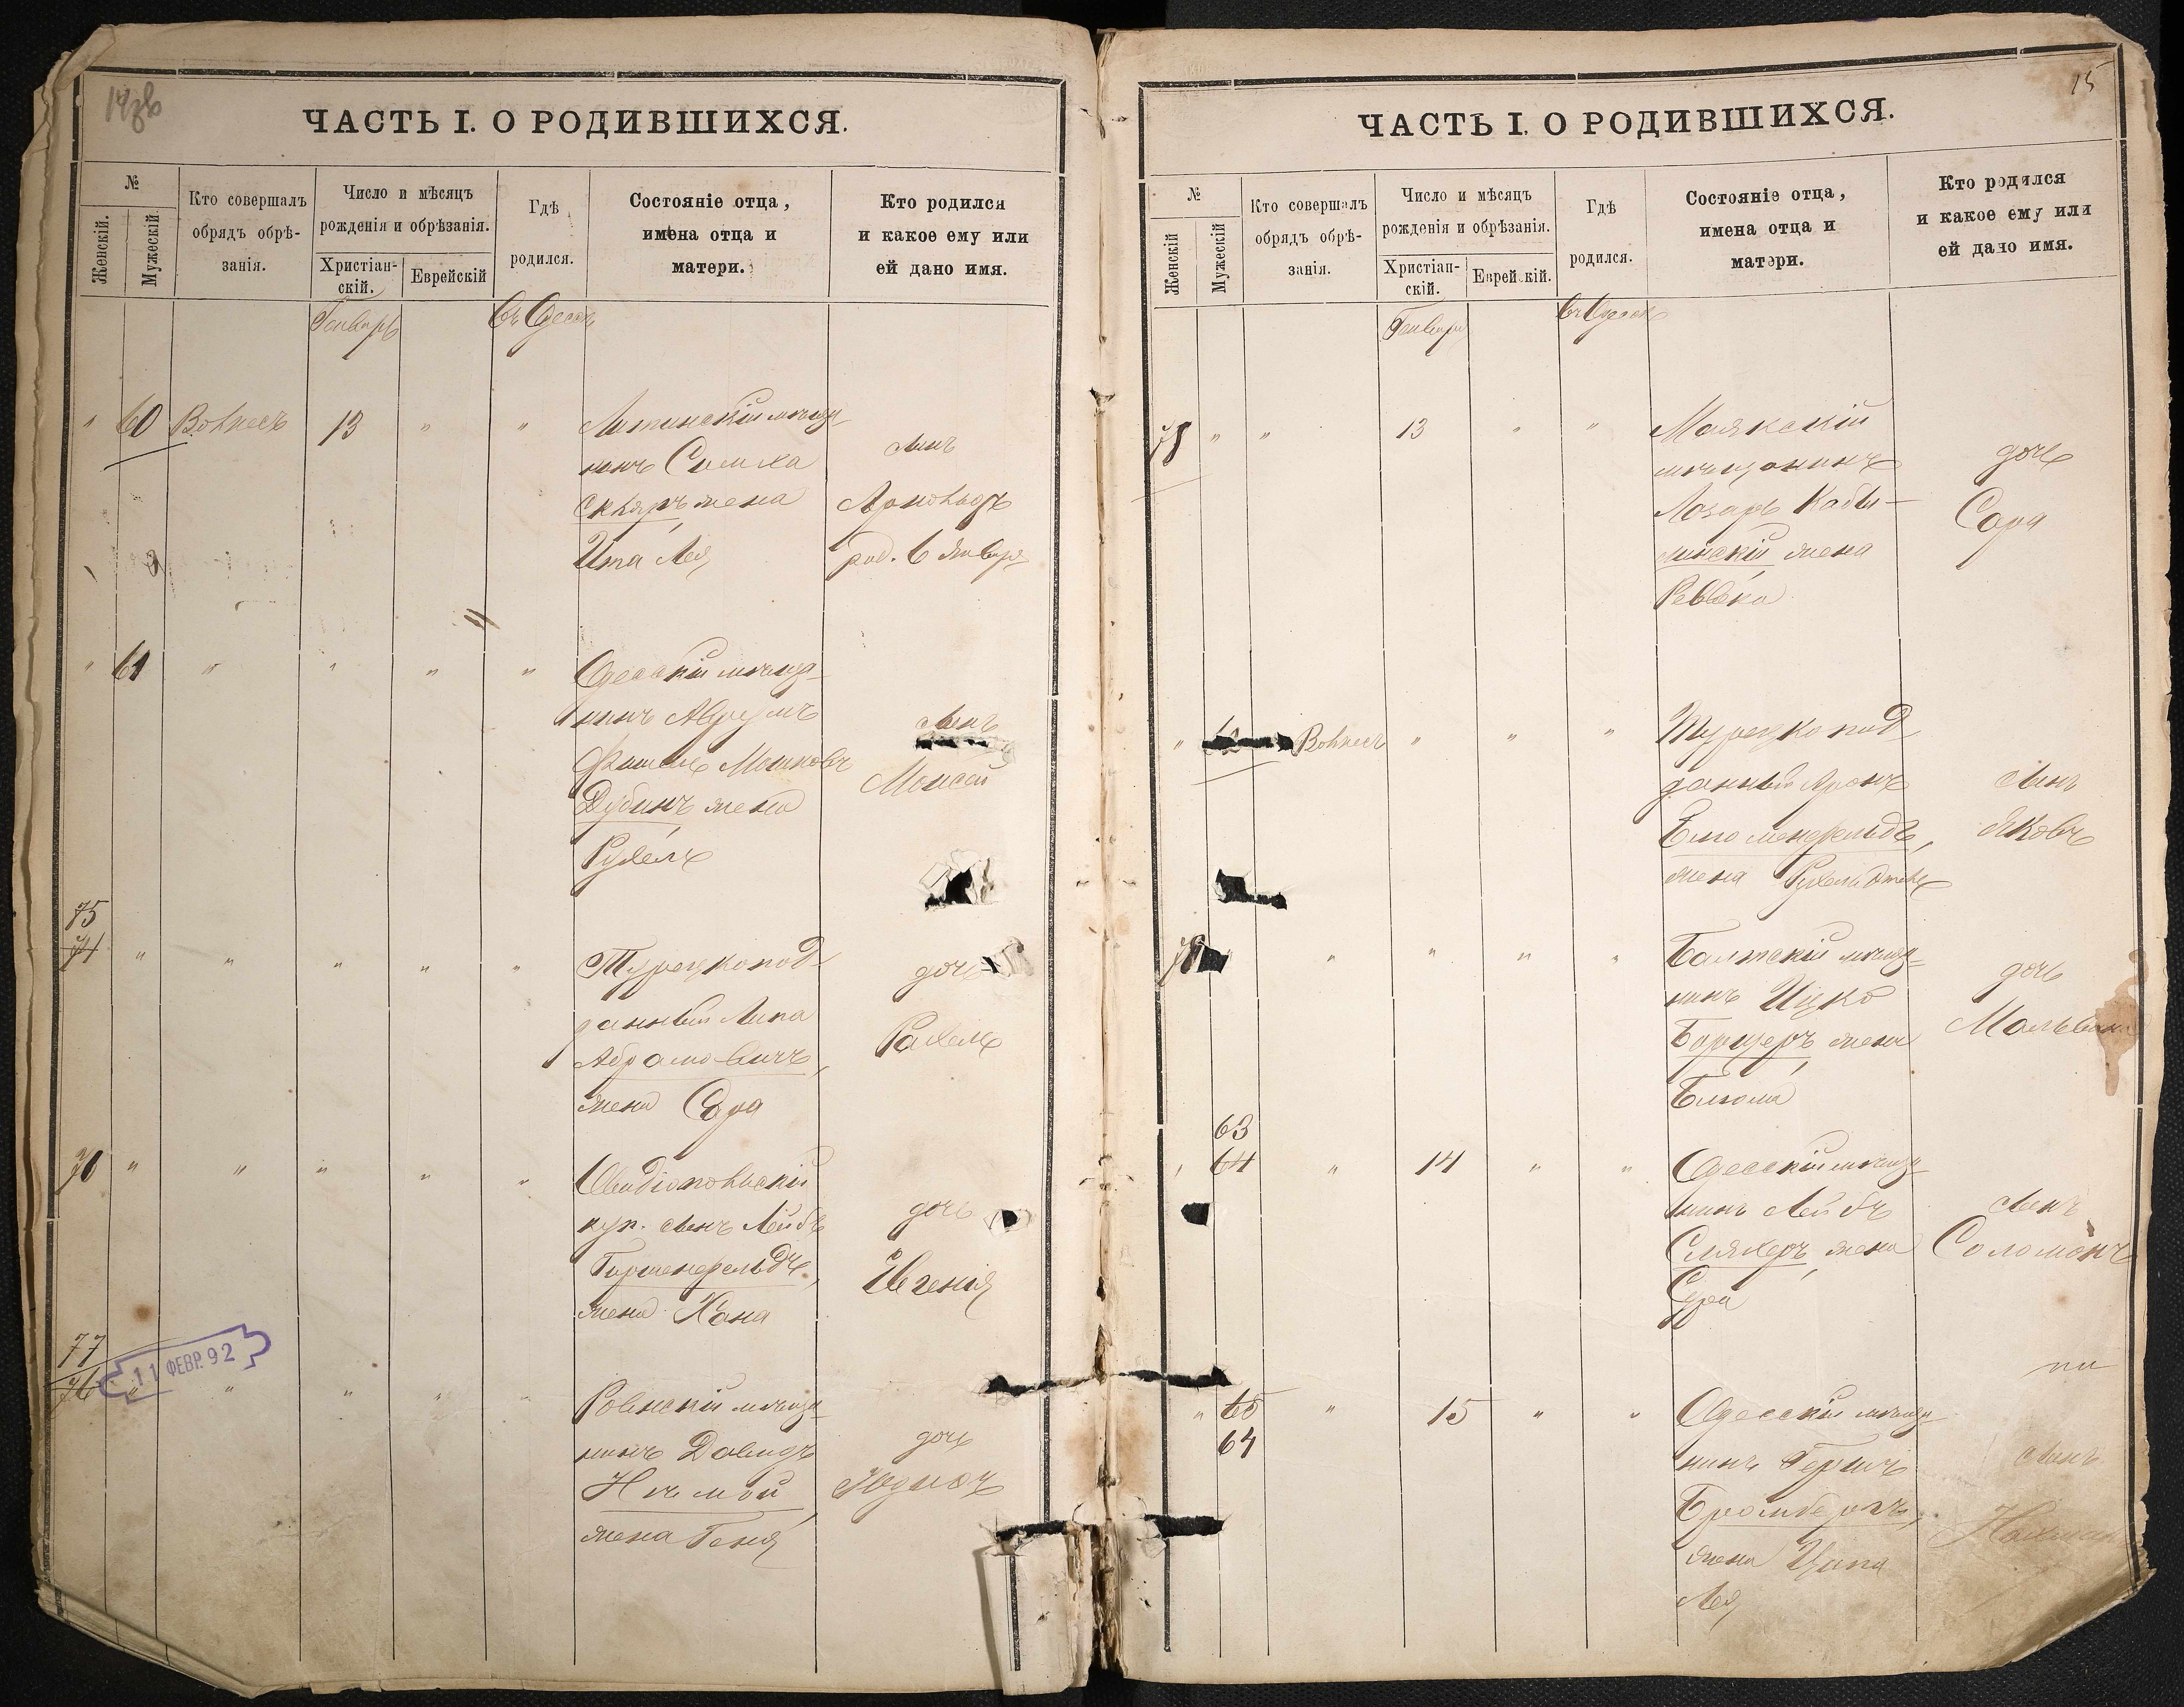 14об
ЧАСТЬ I. О РОДИВШИХСЯ.
№
Женскій.
Мужескій
Кто совершалъ
обрядъ обрѣ-
занія.
Число и мѣсяцъ
рожденія и обрѣзанія.
Христіан-
скій.
Еврейскій
Гдѣ
родился.
Состояніе отца,
имена отца и
матери.
Кто родился
и какое ему или
ей дано имя.
Генварь
Въ Одессѣ
" 60 13 " "
мѣща-
нинъ Симха
Скляръ жена
Ита Лея
сынъ
Арнольдъ
род. 6 Января
" 61 " " " "
Одесскій мѣща-
нинъ Аврумъ
Фишель Мошковъ
Дубинъ жена
Рухель
сынъ
Моисей
75
74 " " " " "
Турецкопод-
данный Липа
Абрамовичъ,
жена Сора
дочь
Рахель
76 " " " " "
Овидіопольскій
куп. сынъ Лейбъ
Гиршенфельдъ,
жена Хана
дочь
Евгенія
77
76 " " " " "
11 ФЕВР. 92
Ровенскій мѣща-
нинъ Давидъ
Нѣмой,
жена Геня
дочь
15
ЧАСТЬ I. О РОДИВШИХСЯ.
№
Женскій
Мужескій
Кто совершалъ
обрядъ обрѣ-
занія.
Число и мѣсяцъ
рожденія и обрѣзанія.
Христіан-
скій.
Еврейскій.
Гдѣ
родился.
Состояніе отца,
имена отца и
матери.
Кто родился
и какое ему или
ей дано имя.
Генварь
Въ Одессѣ
78 " " 13 " "
Маякскій
мѣщанинъ
Лазарь Кабы-
линскій жена
Ревека
дочь
Сора
" 62 " " "
Турецкопод-
данный Аронъ
Блюменфельдъ,
жена
сынъ
Яковъ
" " " "
Балтскій мѣща-
нинъ Ицко
жена
Блюма
дочь
Мальвина
63
64 " 14 " "
Одесскій мѣща-
нинъ Лейбъ
Сляхеръ, жена
Сура
сынъ
Соломонъ
" 65 " 15 " "
64
Одесскій мѣща-
нинъ Гершъ
Бромбергъ,
жена Ципа
Лея
сынъ